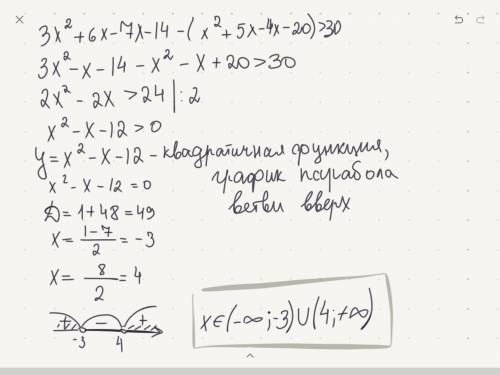 3x²+6x-7x-14-(x²+5x-4x-20)>30
3x²-x-14-x²-x+20>30
2x²-2x>24|:2
x²-x-12>0
y=x²-x-12-квадратичная функция,
график парабола
ветви вверх
x²-x-12=0
Д=1+48=49
x=(1-7)/2=-3
x=8/2=4
+ - +
-3 4
x∈(-∞;-3)∪(4;+∞)